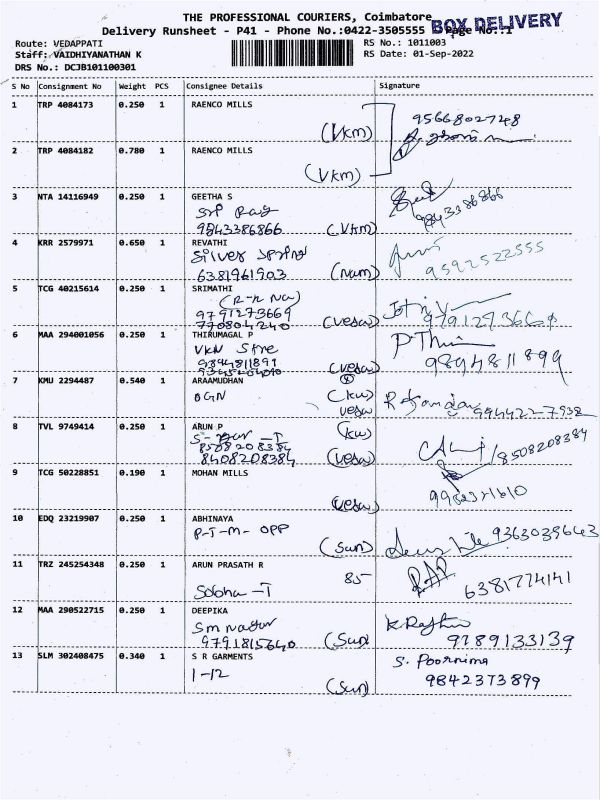 THE PROFESSIONAL COURIERS, Coimbatore
BOX DELIVERY
Delivery Runsheet - P41 - Phone No.:0422-3505555 Page No.:1
Route: VEDAPPATI
RS No.: 1011003
Staff: VAIDHIYANATHAN K
RS Date: 01-Sep-2022
DRS No.: DCJB101100301
S No Consignment No Weight PCS Consignee Details Signature
1 TRP 4084173 0.250 1 RAENCO MILLS
9566802748
(Vkm)
2 TRP 4084182 0.780 1 RAENCO MILLS
(Vkm)
3 NTA 14116949 0.250 1 GEETHA S
9843386866 (Vkm) 9843386866
4 KRR 2579971 0.650 1 REVATHI
Silver Spring
6381961903 (nam) 9592522555
5 TCG 40215614 0.250 1 SRIMATHI
9791273669
770804240 (veda)
6 MAA 294001056 0.250 1 THIRUMAGAL P
P Thiru
9894811899 (veda) 9894811899
7 KMU 2294487 0.540 1 ARAAMUDHAN
BGN (kw)
veda 994422-7938
8 TVL 9749414 0.250 1 ARUN P (kw)
8508208384 8508208384
8408208384 (veda)
9 TCG 50228851 0.190 1 MOHAN MILLS
(veda)
10 EDQ 23219907 0.250 1 ABHINAYA
P-T-M- OPP 9363039643
(Sun)
11 TRZ 245254348 0.250 1 ARUN PRASATH R
85-
Sobha -T 6381774141
12 MAA 290522715 0.250 1 DEEPIKA
Sm nagar K Raghu
9791815640 (Sun) 9789133139
13 SLM 302408475 0.340 1 S R GARMENTS S. Poornima
1-12 9842373899
(Sun)